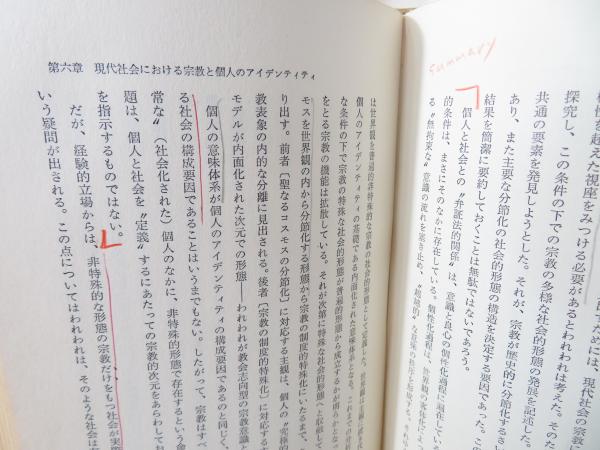 summary
視座をみつける必要があるとわれわれは考えた。そのた
探究し、この条件の下での宗教の多様な社会的形態の発展を記述した。
共通の要素を発見しようとした。それが、宗教が歴史的に分節化するさ
あり、また主要な分節化の社会的形態の構造を決定する要因であった。この
結果を簡潔に要約しておくことは無駄ではないであろう。
個人と社会との〝弁証法的関係〟は、意識と良心の個性化過程に
的条件は、まさにそのなかに存在している。個性化過程は、世界観の客体化によって
る〝無拘束な〟意識の流れを塞き止め、
第六章 現代社会における宗教と個人のアイデンティティ
は世界観を普遍的非特殊的な宗教の社会的形態として定義した。
個人のアイデンティティの基礎である内面化された意味体系となる。これまでの分析
な条件の下で宗教の特殊な社会的形態が普遍的形態から成立するかが明らかとなっ
をとる宗教の機能は拡散している。それが次第に特殊な社会的形態へと収斂して
モスを世界観の内から分節化する形態から宗教の制度的特殊化にいたるまで、
り出す。前者〔聖なるコスモスの分節化〕に対応する主観は、個人の〝究極的
教表象の内的な分離に見出される。後者〔宗教の制度的特殊化〕に対応する
モデルが内面化された次元での形態――われわれが教会志向型の宗教意識と
個人の意味体系が個人のアイデンティティの構成要因であるのと同じく、
る社会の構成要因であることはいうまでもない。したがって、宗教はすべ
常な〟（社会化された）個人のなかに、非特殊的形態で存在するという命
題は、個人と社会を〝定義〟するにあたっての宗教的次元をあらわしてお
を指示するものではない。
だが、経験的立場からは、非特殊的な形態の宗教だけをもつ社会が実際
いう疑問が出される。この点についてはわれわれは、そのような社会は